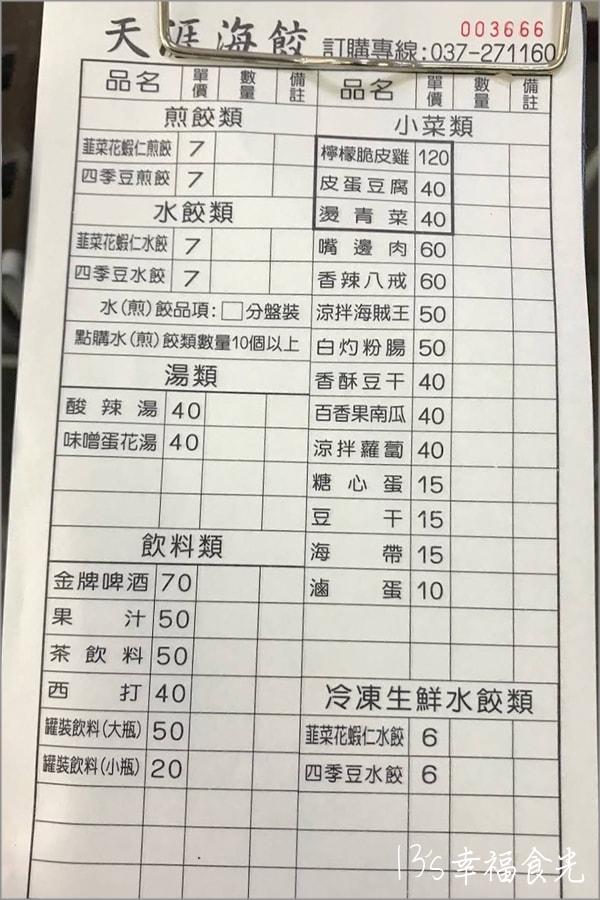 003666
天涯海餃 訂購專線:037-271160
品名 單價 數量 備註
煎餃類
韮菜花蝦仁煎餃 7
四季豆煎餃 7
水餃類
韮菜花蝦仁水餃 7
四季豆水餃 7
水(煎)餃品項:□分盤裝
點購水(煎)餃類數量10個以上
湯類
酸辣湯 40
味噌蛋花湯 40
飲料類
金牌啤酒 70
果汁 50
茶飲料 50
西打 40
罐裝飲料(大瓶) 50
罐裝飲料(小瓶) 20
品名 單價 數量 備註
小菜類
檸檬脆皮雞 120
皮蛋豆腐 40
燙青菜 40
嘴邊肉 60
香辣八戒 60
涼拌海賊王 50
白灼粉腸 50
香酥豆干 40
百香果南瓜 40
涼拌蘿蔔 40
糖心蛋 15
豆干 15
海帶 15
滷蛋 10
冷凍生鮮水餃類
韮菜花蝦仁水餃 6
四季豆水餃 6
13's幸福食光